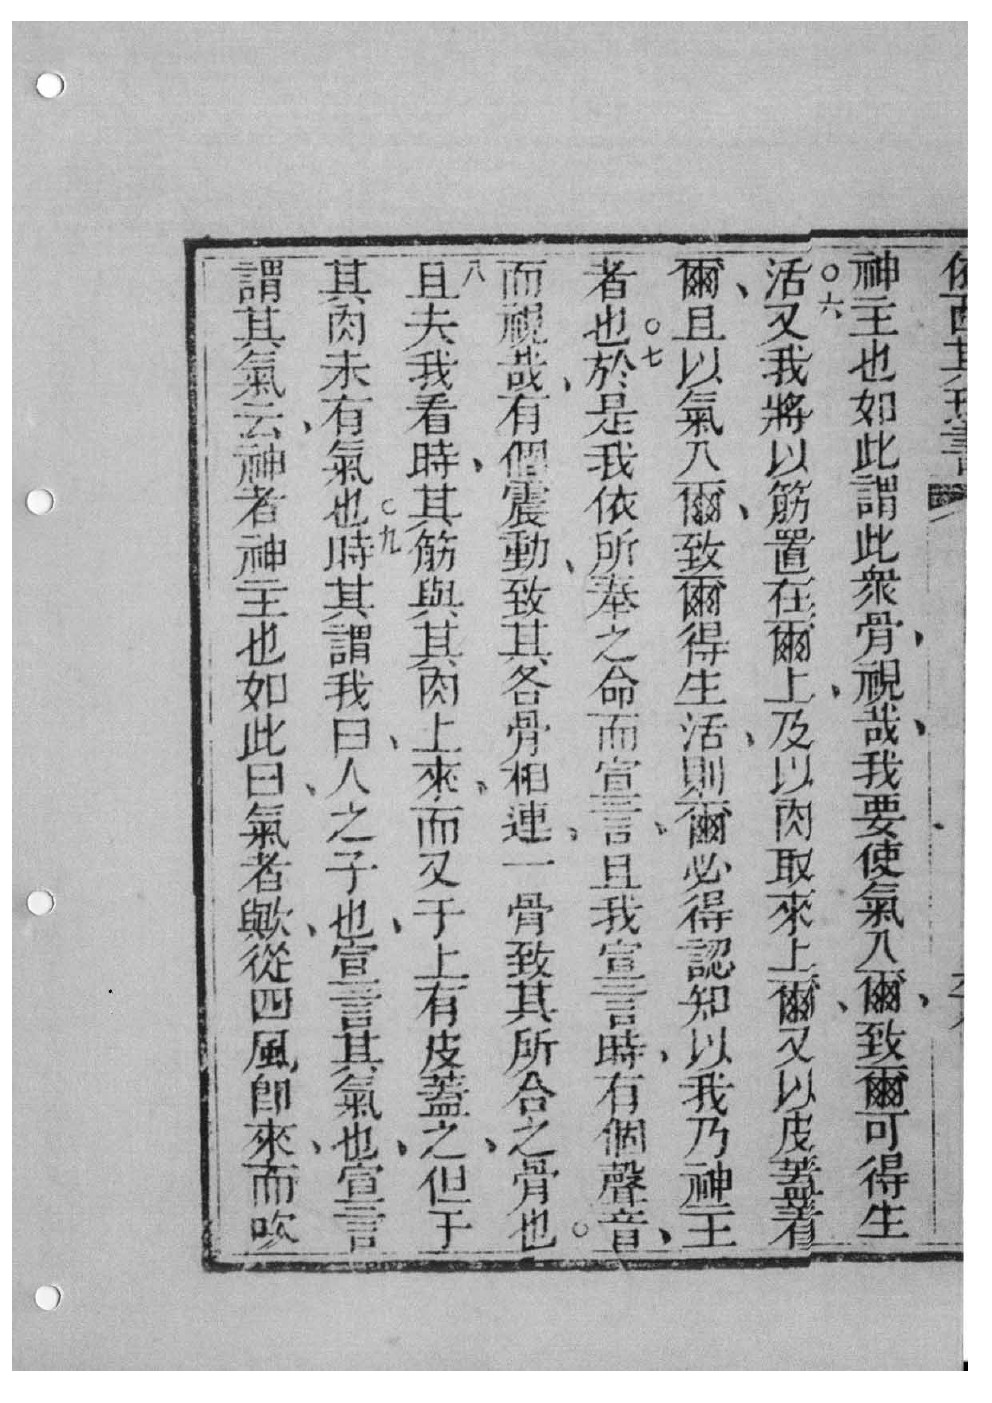 神主也如此謂此衆骨、視哉、我要使氣入爾、致爾可得生
活○六又我將以筋置在爾上、及以肉取來上爾、又以皮蓋着
爾、且以氣入爾、致爾得生活、則爾必得認知以我乃神主
者也○七於是我依所奉之命而宣言、且我宣言時、有個聲音、
而視哉、有個震動、致其各骨相連、一骨致其所合之骨也○
八且夫我看時、其筋與其肉上來、而又于上有皮蓋之、但于
其肉未有氣也○九時其謂我曰、人之子也、宣言其氣也、宣言
謂其氣云、神者神主也如此曰、氣者歟、從四風卽來、而吹